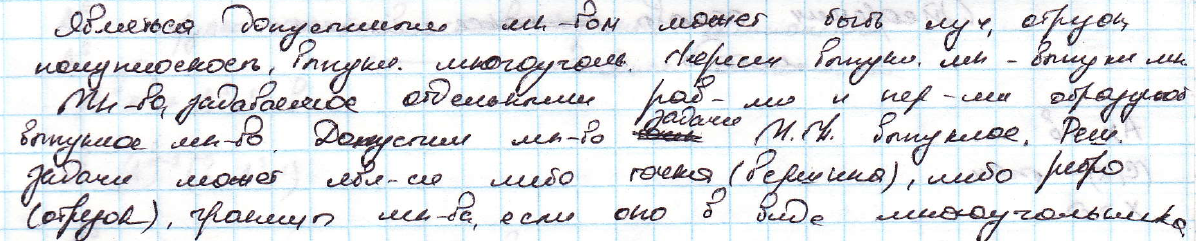 Являться допустимым мн-вом может быть луч, отрезок,
полуплоскость, выпукл. многоуголь. Пересеч выпукл. мн - выпукл мн.
Мн-ва, задаваемое отдельными рав-ми и нер-ми образуют
выпуклое мн-во. Допустим мн-во задачи выпуклое. Реш.
задачи может явл-ся либо точка (вершина), либо ребро
(отрезок), границы мн-ва, если оно в виде многоугольника